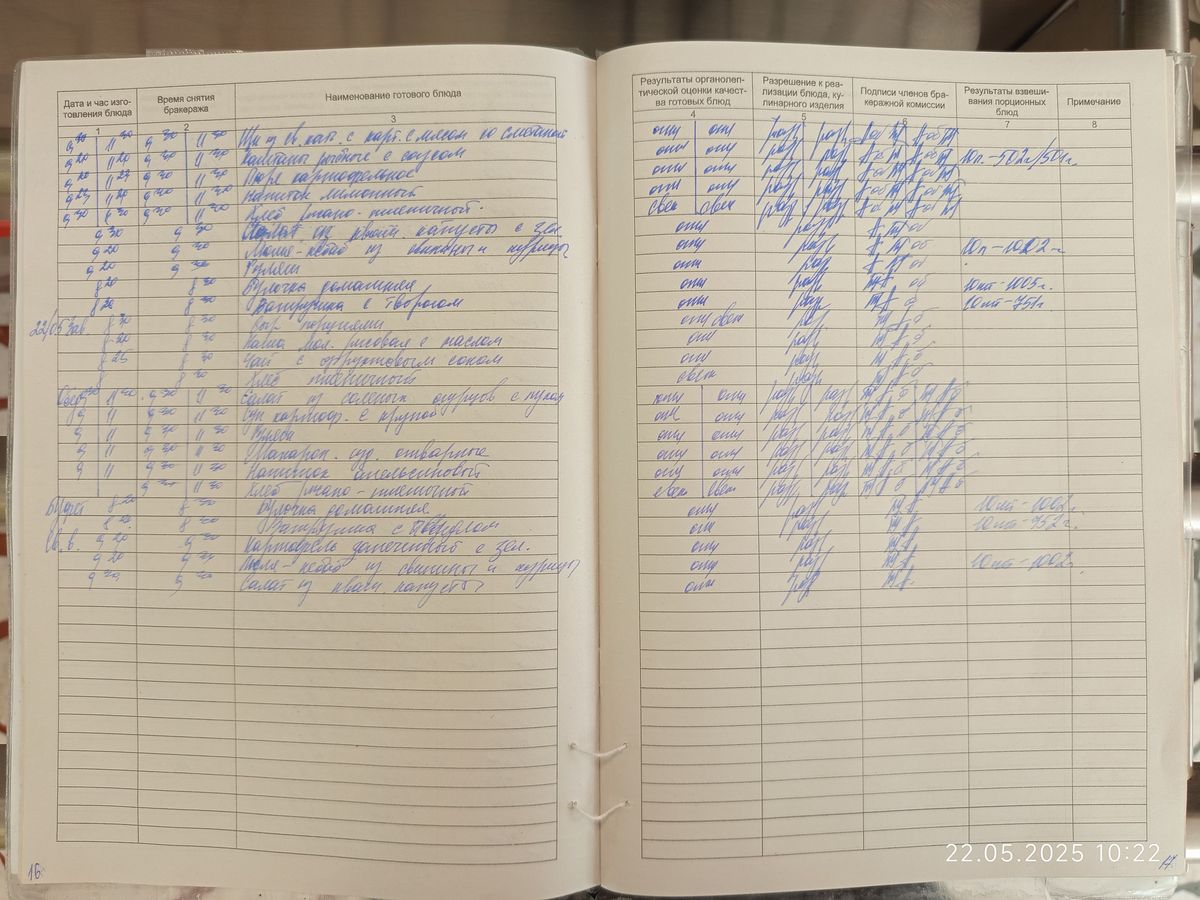 Дата и час изготовления блюда | Время снятия бракеража | Наименование готового блюда | Результаты органолептической оценки качества готовых блюд | Разрешение к реализации блюда, кулинарного изделия | Подписи членов бракеражной комиссии | Результаты взвешивания порционных блюд | Примечание
1 | 2 | 3 | 4 | 5 | 6 | 7 | 8
9 30 11 30 | 9 30 11 30 | Щи из св. кап. с карт. с мясом со сметаной | отл отл | разр разр
9 20 11 20 | 9 30 11 30 | рыбные с соусом | отл отл | разр разр | 10п. - 502г/501г.
9 20 11 | 9 30 11 30 | Пюре картофельное | отл отл | разр разр
9 11 20 | 9 30 11 30 | Напиток лимонный | отл отл | разр разр
9 30 8 30 | 9 30 11 30 | Хлеб ржано-пшеничный | свеж свеж | разр разр
9 30 | 9 30 | Салат из кваш. капусты с зел. | отл | разр
9 20 | 9 30 | Люля-кебаб из свинины и курицы | отл | разр | 10п - 1002г.
9 20 | 9 30 | Гуляш | отл | разр
8 20 | 8 30 | Булочка домашняя | отл | разр | 10шт - 1005г.
8 20 | 8 30 | Ватрушка с творогом | отл | разр | 10шт - 751г.
22/05 Зав. 8 30 | 8 30 | Сыр порциями | отл свеж | разр
8 20 | 8 30 | Каша мол. рисовая с маслом | отл | разр
8 25 | 8 30 | Чай с фруктовым соком | отл | разр
8 | 8 30 | Хлеб пшеничный | свеж | разр
Обед 11 20 | 9 30 11 30 | Салат из соленых огурцов с луком | отл отл | разр разр
9 11 | 9 30 11 30 | Суп картоф. с крупой | отл отл | разр разр
9 11 | 9 30 11 30 | Гуляш | отл отл | разр разр
9 11 | 9 30 11 30 | Макарон. изд. отварные | отл отл | разр разр
9 11 | 9 30 11 30 | Напиток апельсиновый | отл отл | разр разр
9 30 11 30 | Хлеб ржано-пшеничный | свеж свеж | разр разр
Буфет 8 20 | 8 30 | Булочка домашняя | отл | разр | 10шт - 1002г.
8 20 | 8 30 | Ватрушка с | отл | разр | 10шт - 752г.
Св. в. 9 20 | 9 30 | Картофель запеченный с зел. | отл | разр
9 20 | 9 30 | Люля-кебаб из свинины и курицы | отл | разр | 10шт - 1002г.
9 20 | 9 30 | Салат из кваш. капусты | отл | разр
16
17
22.05.2025 10:22